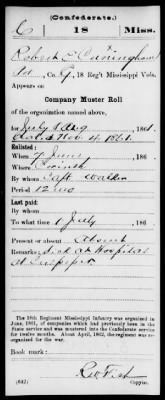 (Confederate.)
C 18 Miss.
Robert S Cunningham
Co. , 18 Reg't Mississippi Vols.
Appears on
Company Muster Roll
of the organization named above,
for July & Aug , 1861.
dated Nov 4, 1861.
Enlisted:
When 7 June , 186
Where Corinth
By whom Capt Walker
Period 12 mo
Last paid:
By whom
To what time 1 July , 186
Present or absent Absent
Remarks: sick at Hospital
at Culpeper
The 18th Regiment Mississippi Infantry was organized in
June, 1861, of companies which had previously been in the
State service and was mustered into the Confederate service
for twelve months. About April, 1862, the regiment was re-
organized for the war.
Book mark:
(642)
Copyist.